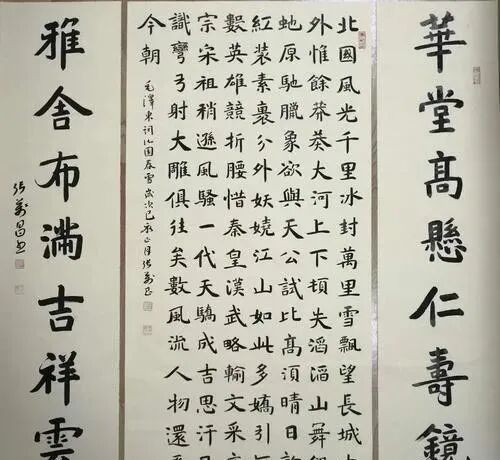 華堂高懸仁壽鏡
北國風光千里冰封萬里雪飄望長城
外惟餘莽莽大河上下頓失滔滔山舞
虵原馳臘象欲與天公試比高須晴日
紅裝素裹分外妖嬈江山如此多嬌引
數英雄競折腰惜秦皇漢武略輸文采
宗宋祖稍遜風騷一代天驕成吉思汗
識彎弓射大雕俱往矣數風流人物還
今朝
毛澤東詞沁園春雪歲次己亥正月張萬昌
雅舍布滿吉祥雲
張萬昌書